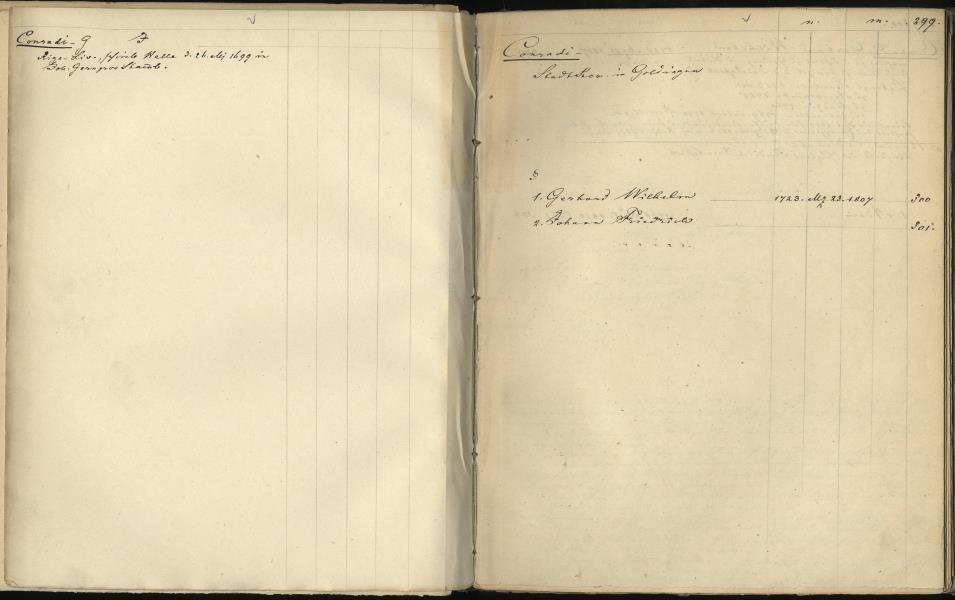 Conradi. G J
Riga-Liv., Halle d. 26. Mj 1699 in
n. m. 299.
Conradi.
in Goldingen
§
1. Gerhard Wilhelm 1723. Mz 23. 1807 300
2. Johann Friedrich 301.